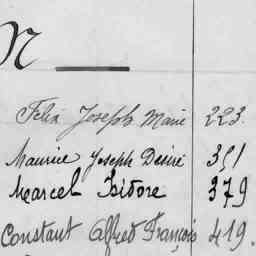 N
Felix Joseph Marie 223.
Maurice Joseph Désiré 351
Marcel Isidore 379
Constant Alfred François 419.